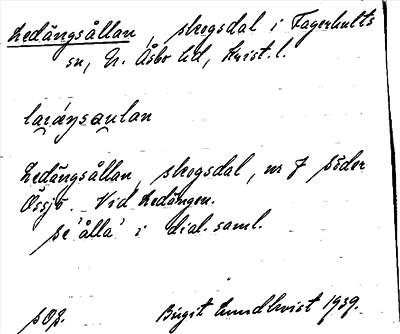 Ledängsållan, skogsdal i Fagerhults
sn, N. Åsbo hd, Krist. l.
Ledängsållan, skogsdal, nr 7 söder
Össjö. Vid Ledängen.
se 'ålla' i dial. saml.
Birgit Lundkvist 1939.